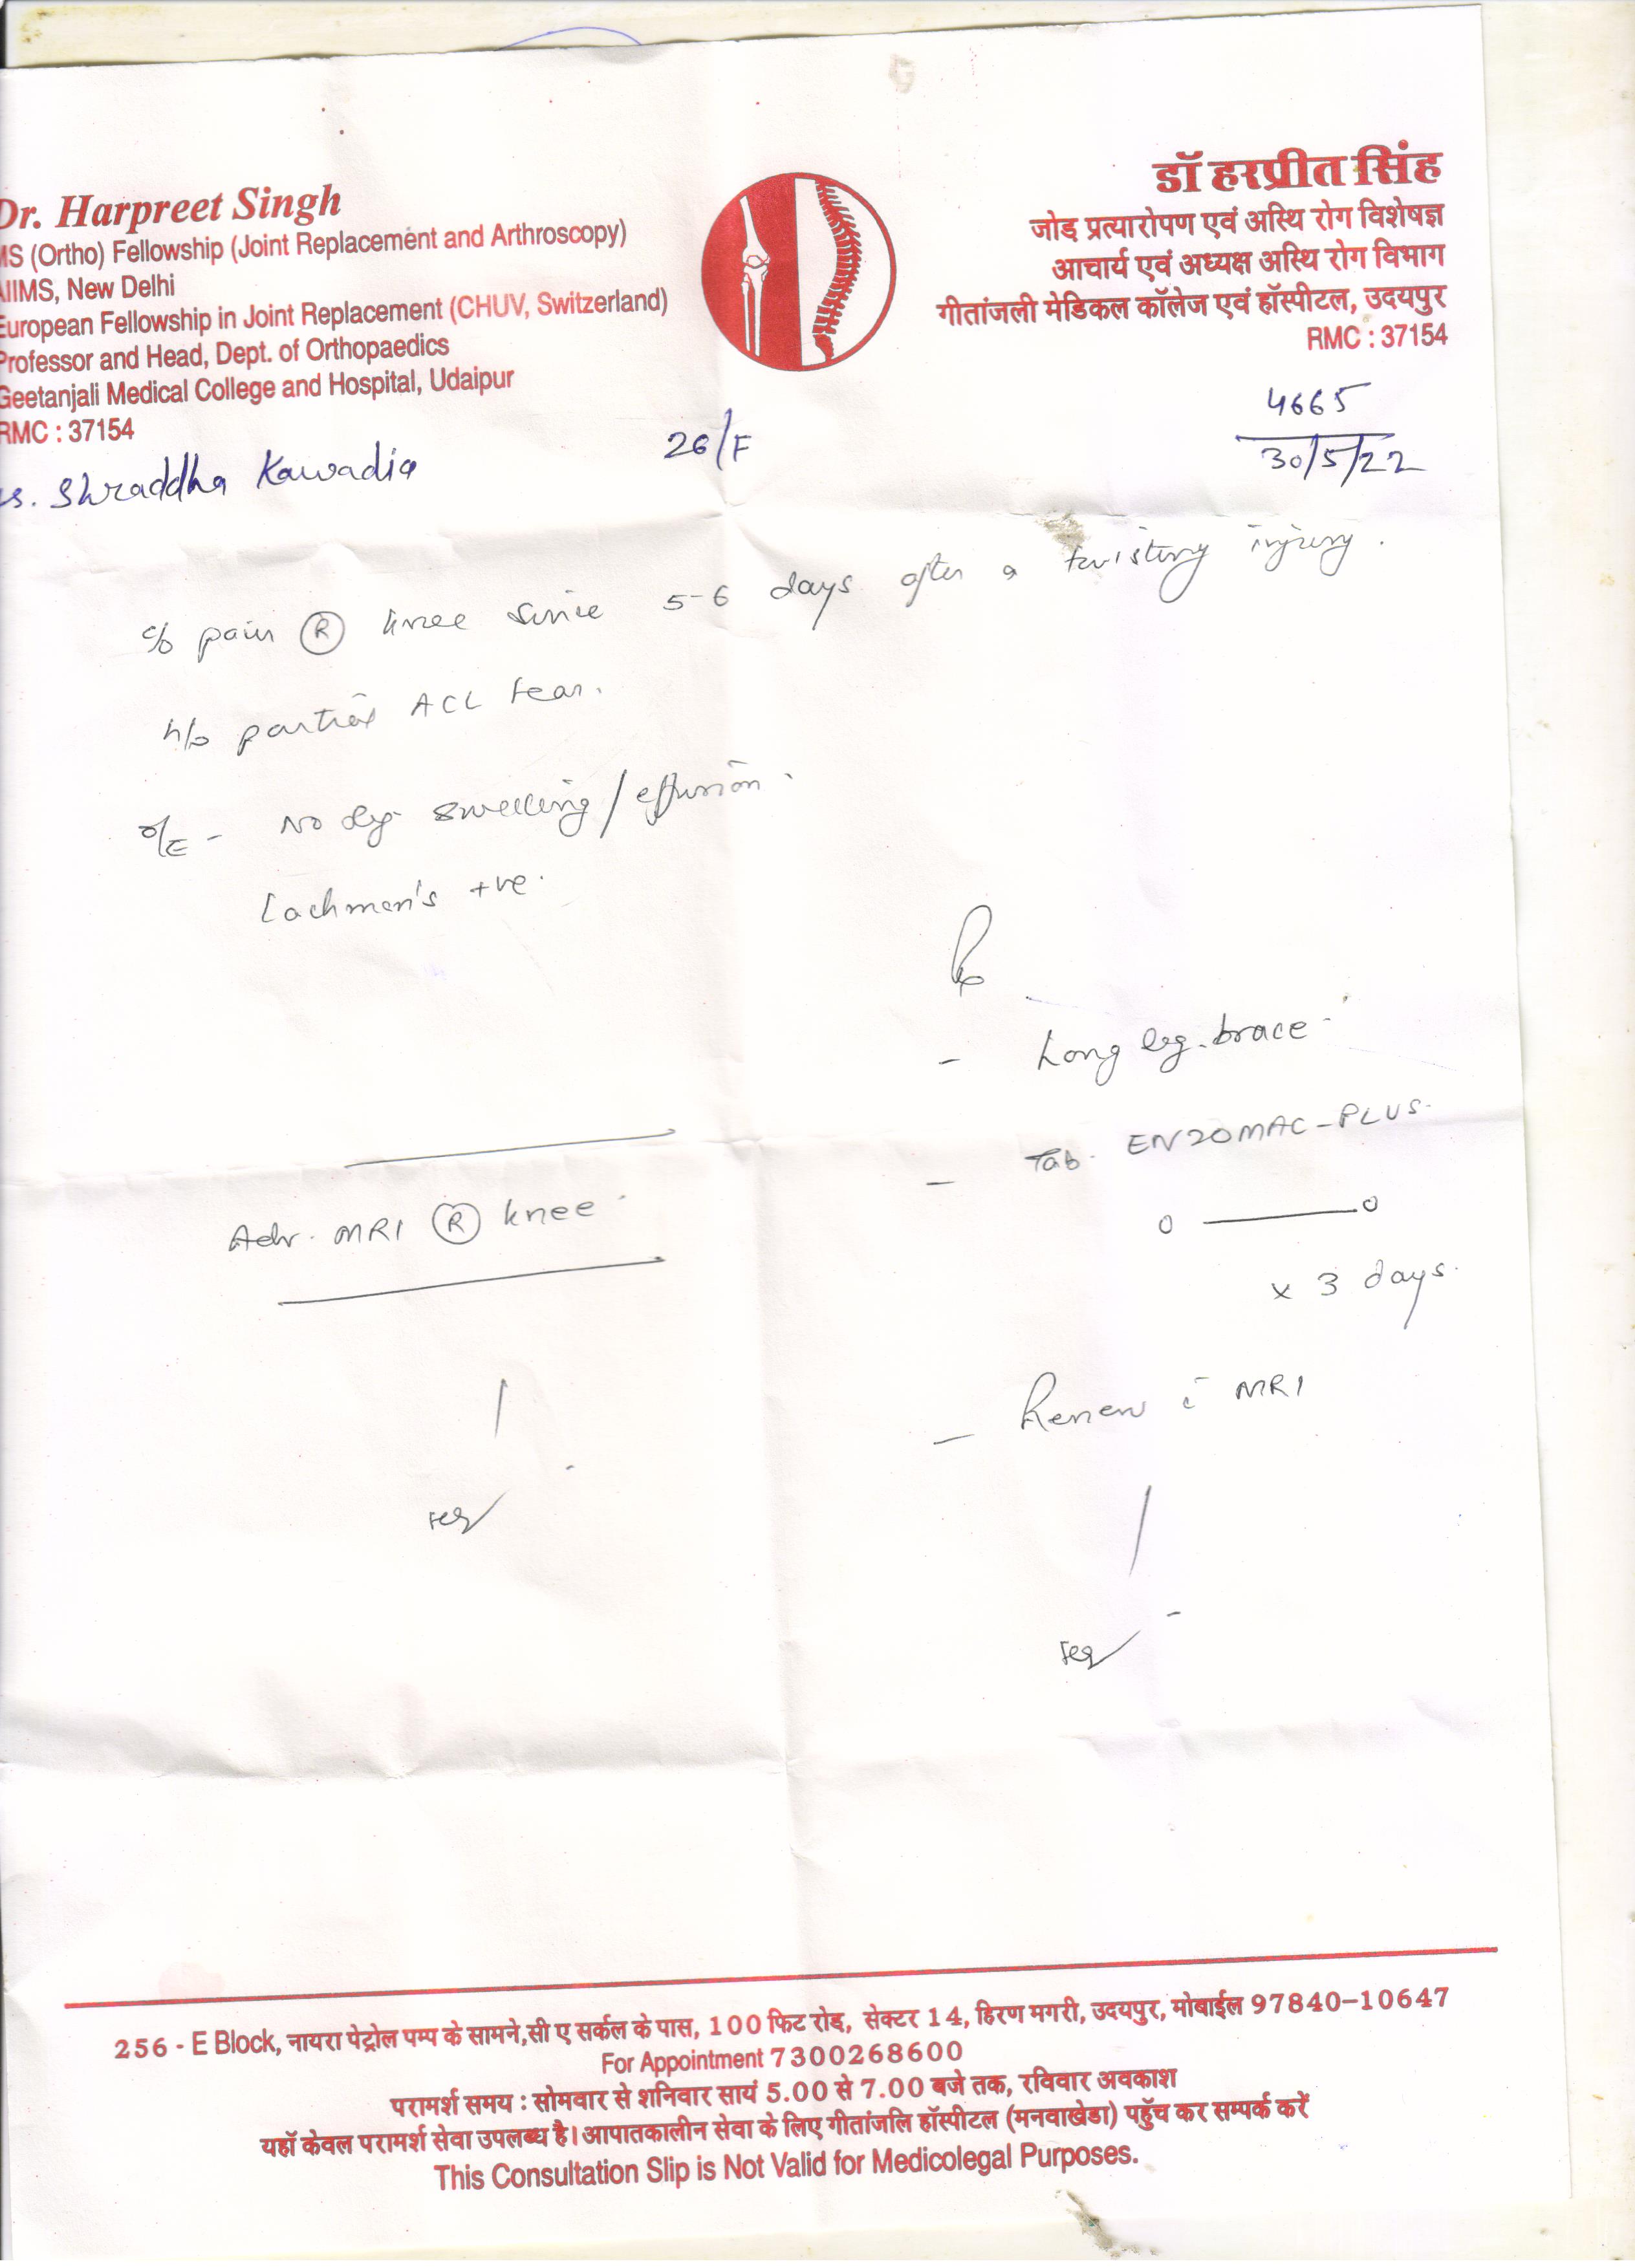 Dr. Harpreet Singh
MS (Ortho) Fellowship (Joint Replacement and Arthroscopy)
AIIMS, New Delhi
European Fellowship in Joint Replacement (CHUV, Switzerland)
Professor and Head, Dept. of Orthopaedics
Geetanjali Medical College and Hospital, Udaipur
RMC : 37154
डॉ हरप्रीत सिंह
जोड़ प्रत्यारोपण एवं अस्थि रोग विशेषज्ञ
आचार्य एवं अध्यक्ष अस्थि रोग विभाग
गीतांजली मेडिकल कॉलेज एवं हॉस्पीटल, उदयपुर
RMC : 37154
4665
30/5/22
s. Shraddha Kawadia 26/F
c/o pain R knee since 5-6 days after a twisting injury.
h/o partial ACL tear.
O/E - No swelling/effusion.
Lachman's +ve.
Rx
- Long leg brace
- Tab. ENZOMAC-PLUS.
0 — 0
x 3 days.
Adv. MRI R knee
- Review c̄ MRI
256 - E Block, नायरा पेट्रोल पम्प के सामने,सी ए सर्कल के पास, 100 फिट रोड़, सेक्टर 14, हिरण मगरी, उदयपुर, मोबाईल 97840-10647
For Appointment 7300268600
परामर्श समय : सोमवार से शनिवार सायं 5.00 से 7.00 बजे तक, रविवार अवकाश
यहाँ केवल परामर्श सेवा उपलब्ध है। आपातकालीन सेवा के लिए गीतांजलि हॉस्पीटल (मनवाखेडा) पहुँच कर सम्पर्क करें
This Consultation Slip is Not Valid for Medicolegal Purposes.